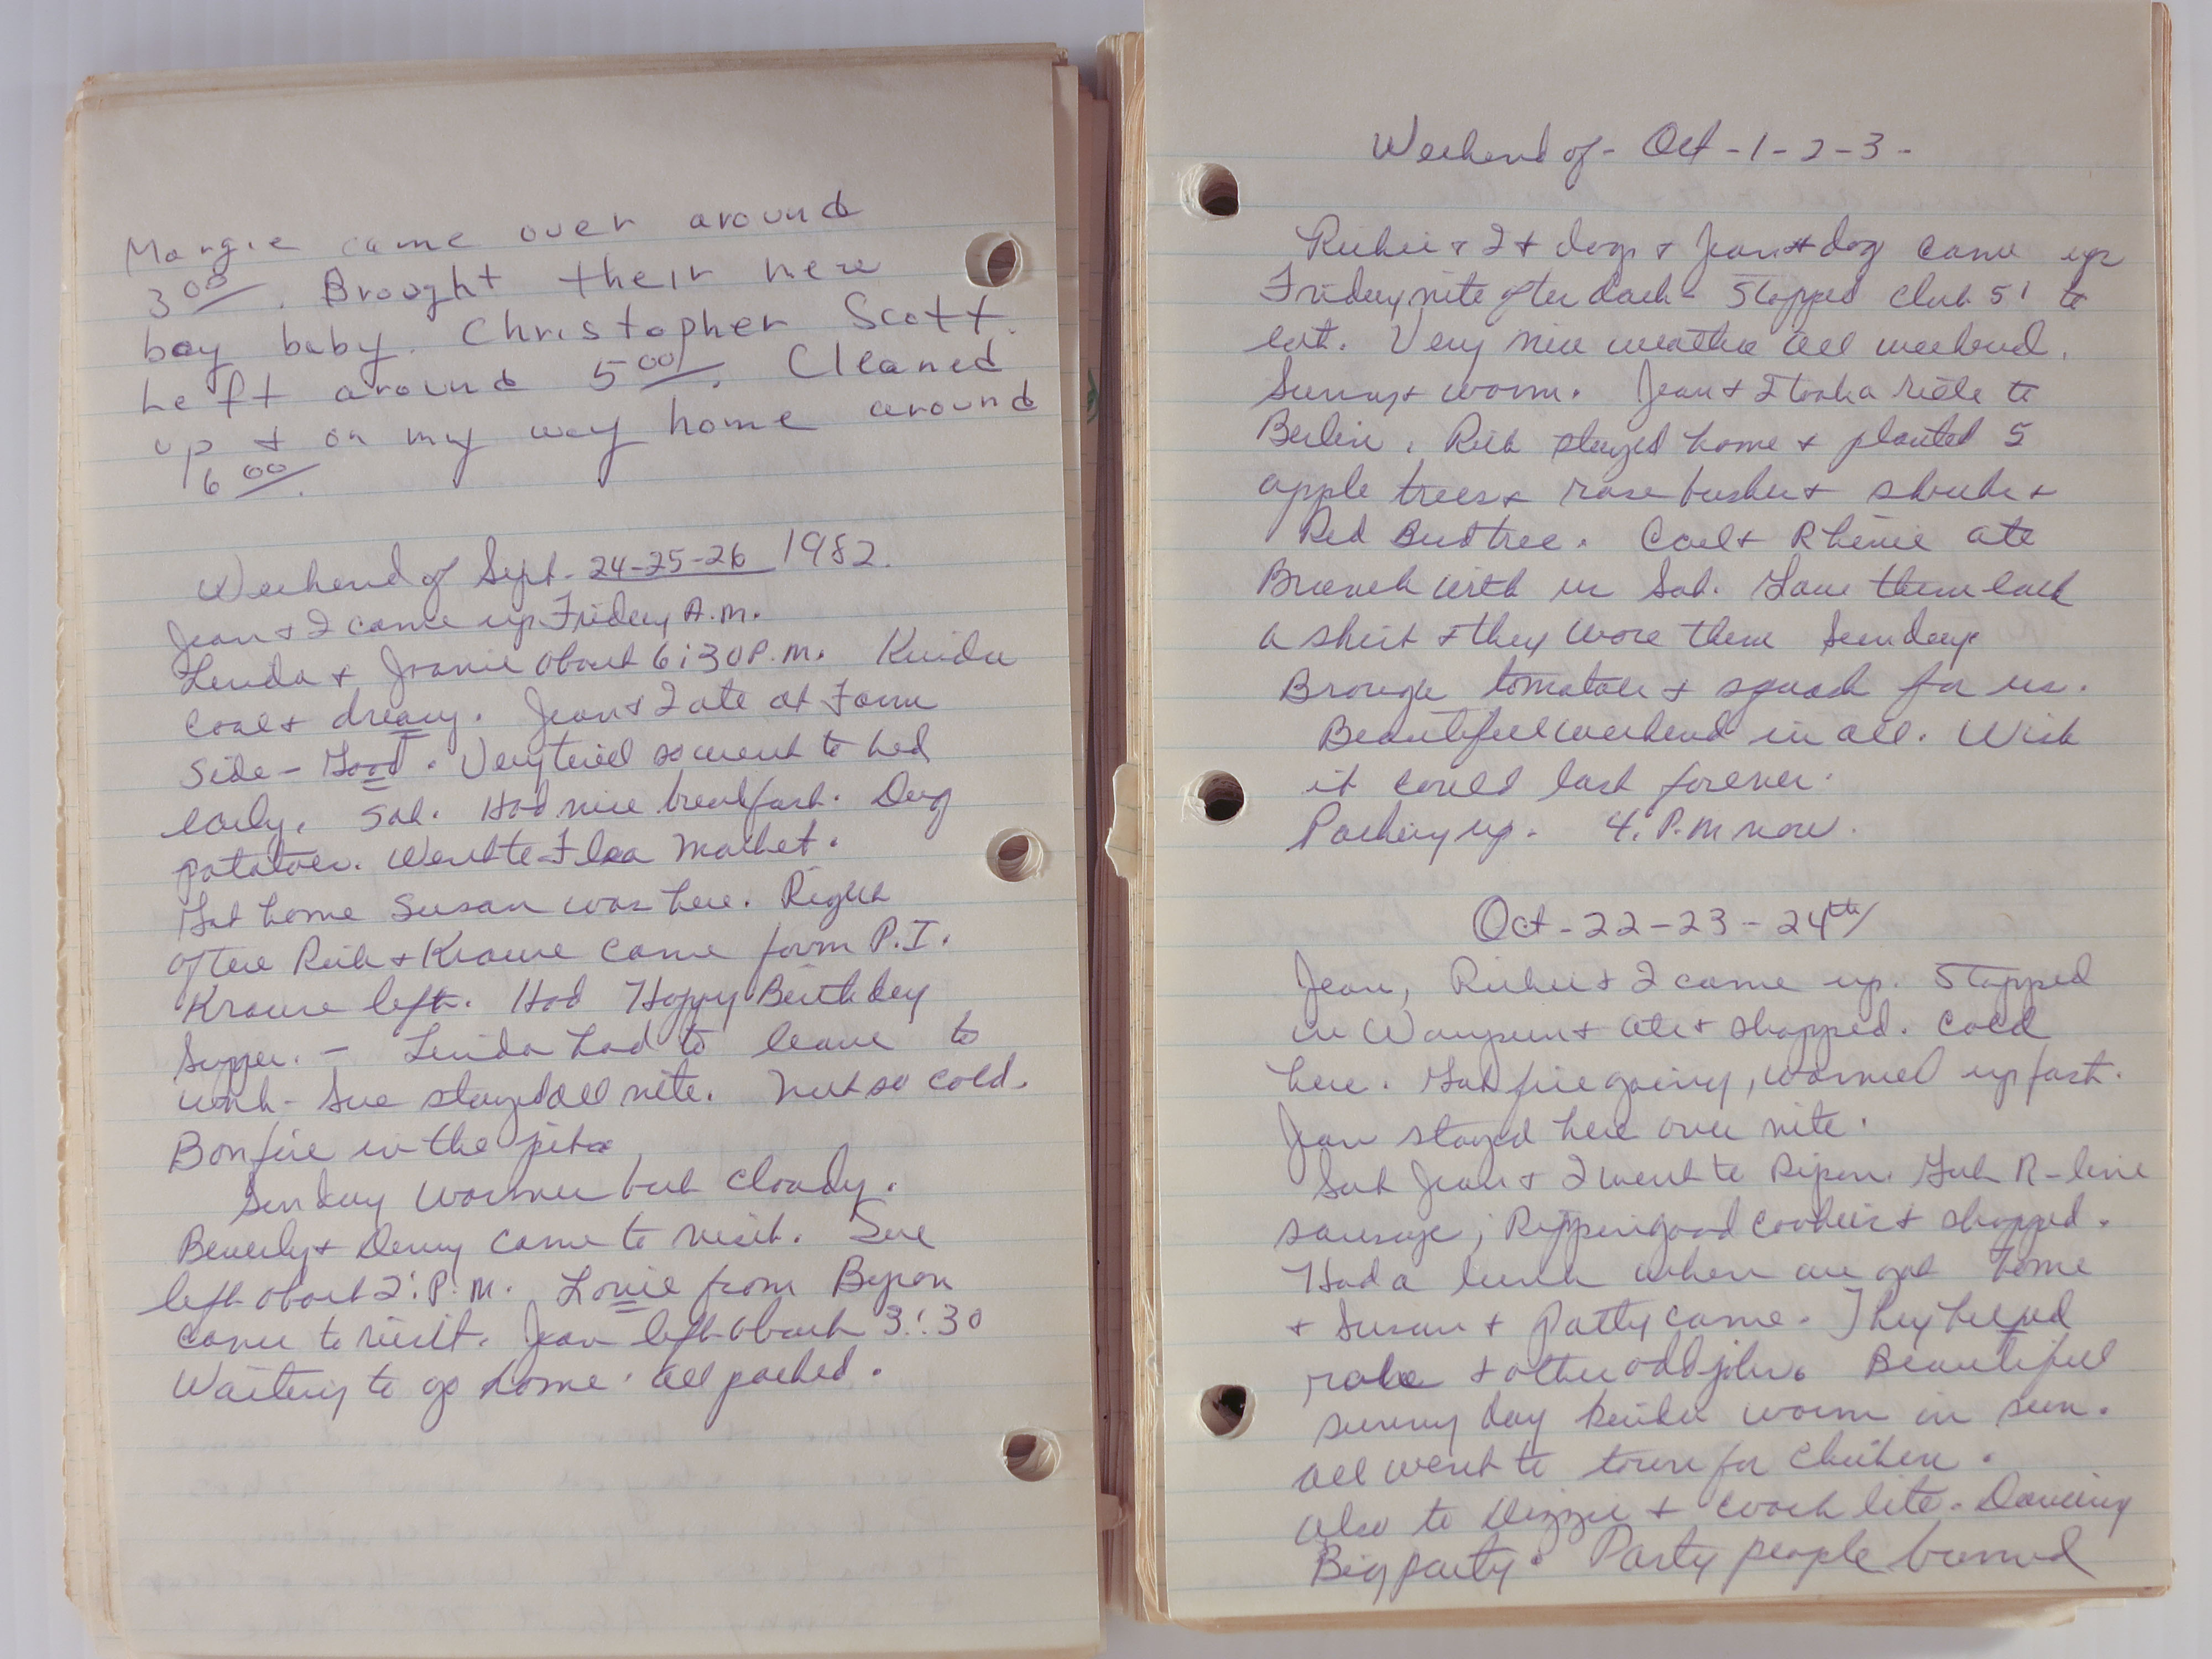 Margie came over around
3⁰⁰. Brought their new
boy baby. Christopher Scott.
Left around 5⁰⁰. Cleaned
up & on my way home around
6⁰⁰.
Weekend of Sept - 24-25-26 1982.
Jean & I came up Friday A.M.
Linda & Joanie about 6:30 P.M. Kinda
cool & dreary. Jean & I ate at Farm
Side - Good. Very tired so went to bed
early. Sat. Had nice breakfast. Dug
potatoes. Went to Flea Market.
Got home Susan was here. Right
after Rich & Krause came from P.I.
Krause left. Had Happy Birthday
Supper. - Linda had to leave to
work - Sue stayed all nite. Not so cold.
Bonfire in the pit
Sunday warmer but cloudy.
Beverly & Denny came to visit. Sue
left about 2: P.M. Louie from Byron
came to visit. Jean left about 3:30
Waiting to go home. All packed.
Weekend of - Oct - 1 - 2 - 3 -
Richie & I & dogs & Jean & dog came up
Friday nite after dark - Stopped Club 51 to
eat. Very nice weather all weekend.
Sunny & warm. Jean & I took a ride to
Berlin. Rich stayed home & planted 5
apple trees & rose bushes & shrubs &
Red Bud tree. Carl & Rhenie ate
Brunch with us Sat. Gave them each
a shirt & they wore them Sunday.
Brough tomatoes & squash for us.
Beautiful weekend in all. Wish
it could last forever.
Packing up. 4: P.M now.
Oct - 22 - 23 - 24th
Jean, Richie & I came up. Stopped
in Waupun & ate & shopped. Cold
here. Got fire going, warmed up fast.
Jean stayed here over nite.
Sat Jean & I went to Ripon. Got R-line
sausage, Rippin good cookies & shopped.
Had a lunch when we got home
& Susan & Patty came. They helped
rake & other odd jobs. Beautiful
sunny day kinda warm in sun.
All went to town for chicken.
Also to Dizzie & Coach lite. Dancing
Big party. Party people burned